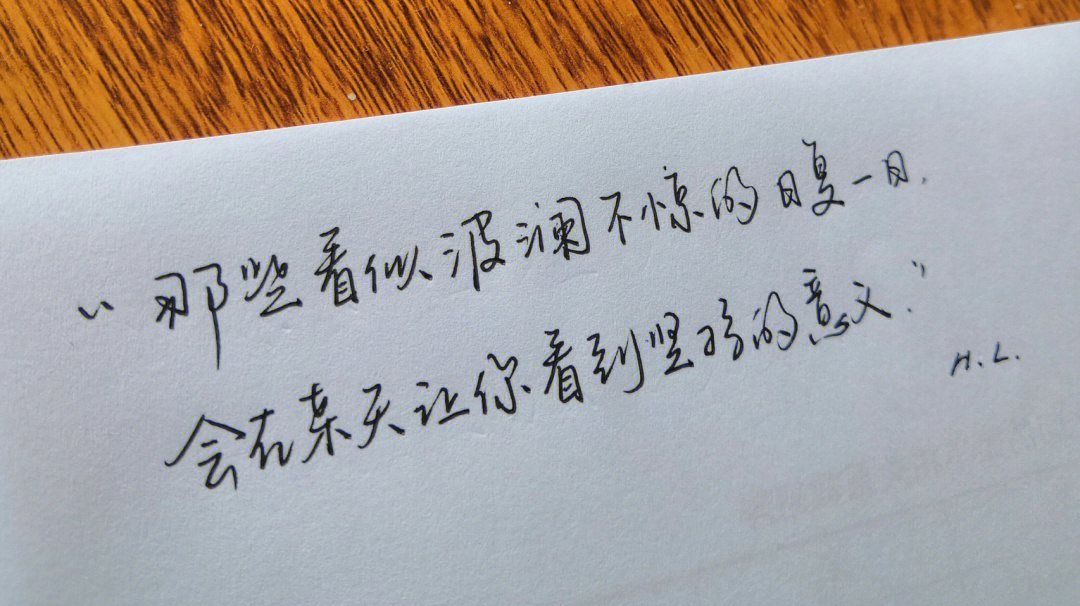 “那些看似波澜不惊的日复一日.
会在某天让你看到坚持的意义.”
H.L.